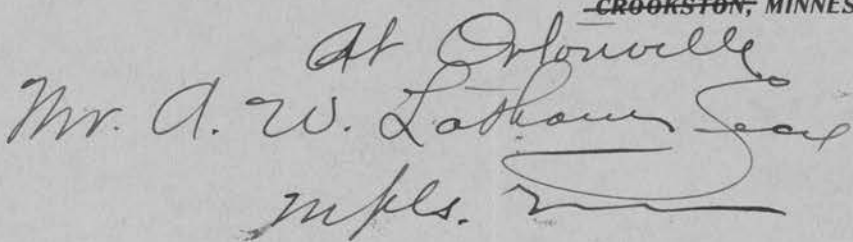 CROOKSTON, MINNES
At Ortonville
Mr. A. W. Latham Secy
Mpls.